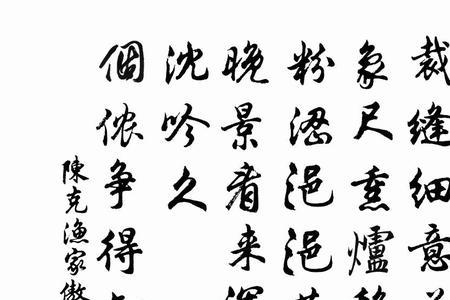 裁縫細意
象尺熏爐
粉浥浥
晚景看来
沈吟久
個侬争得
陳克漁家傲